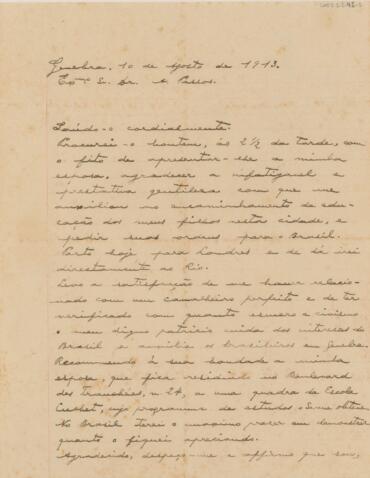 Genebra, 10 de Agosto de 1913.
Exmo S. Dr. A Passos.
Saúdo-o cordialmente.
Procurei-o hontem, ás 2 1/2 da tarde, com
o fito de apresentar-lhe a minha
esposa, agradecer a infatigavel e
prestativa gentileza com que me
auxiliou no encaminhamento da edu-
cação dos meus filhos nesta cidade, e
pedir suas ordens para o Brasil.
Parto hoje para Londres e de lá irei
directamente ao Rio.
Levo a satisfação de me haver relacio-
nado com um cavalheiro perfeito e de ter
verificado com quanto esmero e civismo
o meu digno patricio cuida dos interesses do
Brasil e auxilia os brasileiros em Genebra.
Recommendo á sua bondade a minha
esposa, que fica residindo no Boulevard
des Tranchées, n. 24, a uma quadra da Escola
cujo programma de estudos
No Brasil terei o maximo prazer em demonstrar
quanto o fiquei apreciando.
Agradecido, despeço-me e affirmo que sou,